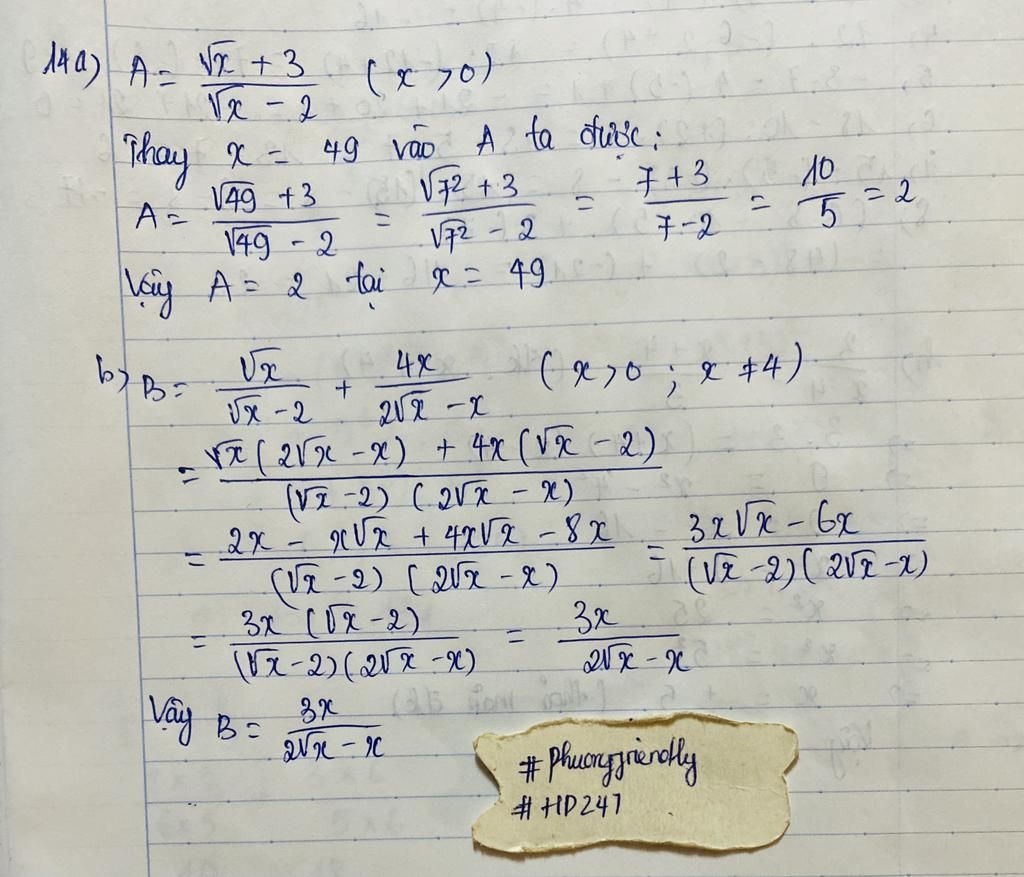 14a) A = (√x + 3)/(√x - 2) (x > 0)
Thay x = 49 vào A ta được:
A = (√49 + 3)/(√49 - 2) = (√7² + 3)/(√7² - 2) = (7 + 3)/(7 - 2) = 10/5 = 2
Vậy A = 2 tại x = 49
b) B = √x/(√x - 2) + 4x/(2√x - x) (x > 0 ; x ≠ 4)
= (√x(2√x - x) + 4x(√x - 2))/((√x - 2)(2√x - x))
= (2x - x√x + 4x√x - 8x)/((√x - 2)(2√x - x)) = (3x√x - 6x)/((√x - 2)(2√x - x))
= (3x(√x - 2))/((√x - 2)(2√x - x)) = 3x/(2√x - x)
Vậy B = 3x/(2√x - x)
#phuongfriendly
#HD247